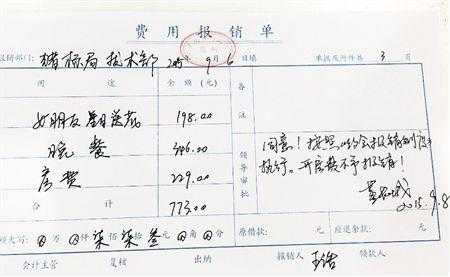 费用报销单
报销部门：猪标局技术部 2015年9月6日填 单据及附件共 3 页
用途 金额（元） 备注
女朋友 198.00
晚餐 346.00
房费 229.00
合计 773.00
领导审批
同意！按照约会报销制度
执行。开房费不予报销！
2015.9.8
大写：⊗万⊗仟柒佰柒拾叁元⊗角⊗分 原借款： 元 应退余款： 元
会计主管 复核 出纳 报销人 王浩 领款人